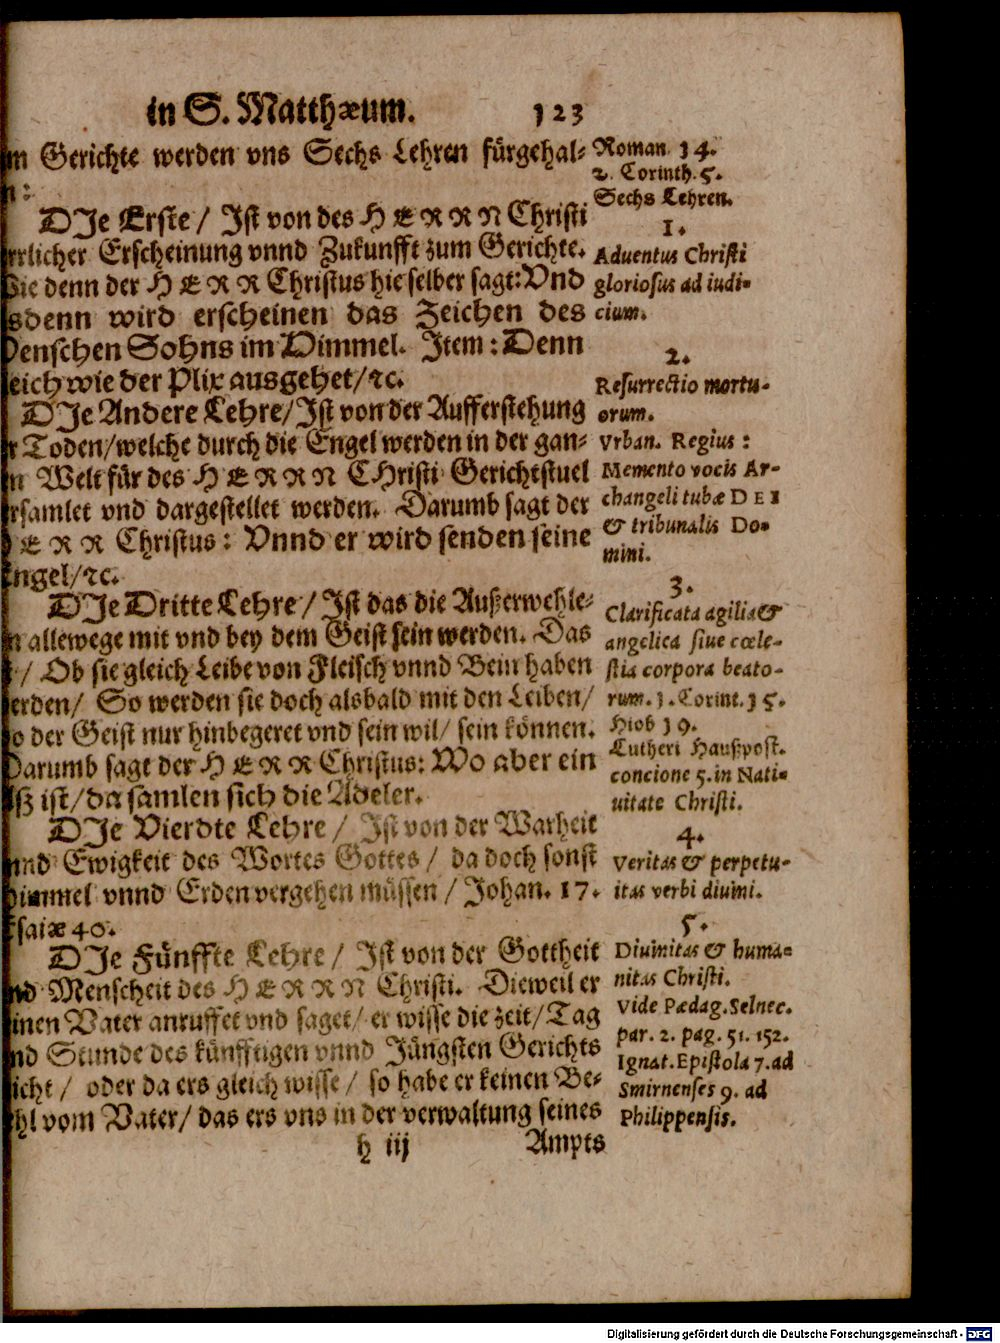 in S. Matthæum. 123
Gerichte werden vns Sechs Lehren fürgehal-
DIe Erste / Ist von des HERRN Christi
Erscheinung vnnd Zukunfft zum Gerichte.
denn der HERR Christus hie selber sagt: Vnd
wird erscheinen das Zeichen des
Sohns im Himmel. Item: Denn
wie der Plix ausgehet/ ꝛc.
DIe Andere Lehre/ Ist von der Aufferstehung
Toden/ welche durch die Engel werden in der gan-
Welt für des HERRN CHristi Gerichtstuel
vnd dargestellet werden. Darumb sagt der
Christus: Vnnd er wird senden seine
ꝛc.
DIe Dritte Lehre / Ist das die Außerwehle-
allewege mit vnd bey dem Geist sein werden. Das
/ Ob sie gleich Leibe von Fleisch vnnd Bein haben
/ So werden sie doch alsbald mit den Leiben/
der Geist nur hinbegeret vnd sein wil/ sein können.
Darumb sagt der HERR Christus: Wo aber ein
ist/ da samlen sich die Adeler.
DIe Vierdte Lehre / Ist von der Warheit
Ewigkeit des Wortes Gottes / da doch sonst
vnnd Erden vergehen müssen / Johan. 17.
40.
DIe Fünffte Lehre / Ist von der Gottheit
Menscheit des HERRN Christi. Dieweil er
Vater anruffet vnd saget/ er wisse die zeit/ Tag
Stunde des künfftigen vnnd Jüngsten Gerichts
/ oder da ers gleich wisse / so habe er keinen Be-
vom Vater/ das ers vns in der verwaltung seines
h iij Ampts
Roman 14.
2. Corinth. 5.
Sechs Lehren.
1.
Aduentus Christi
gloriosus ad iudi-
cium.
2.
Resurrectio mortu-
orum.
Vrban. Regius:
Memento vocis Ar-
changeli tubæ DEI
& tribunalis Do-
mini.
3.
Clarificata agilia &
angelica siue cœle-
stia corpora beato-
rum. 1. Corint. 15.
Hiob 19.
Lutheri Haußpost.
concione 5. in Nati-
uitate Christi.
4.
Veritas & perpetu-
itas verbi diuini.
5.
Diuinitas & huma-
nitas Christi.
Vide Pædag. Selnec.
par. 2. pag. 51. 152.
Ignat. Epistola 7. ad
Smirnenses 9. ad
Philippensis.
Digitalisierung gefördert durch die Deutsche Forschungsgemeinschaft - DFG